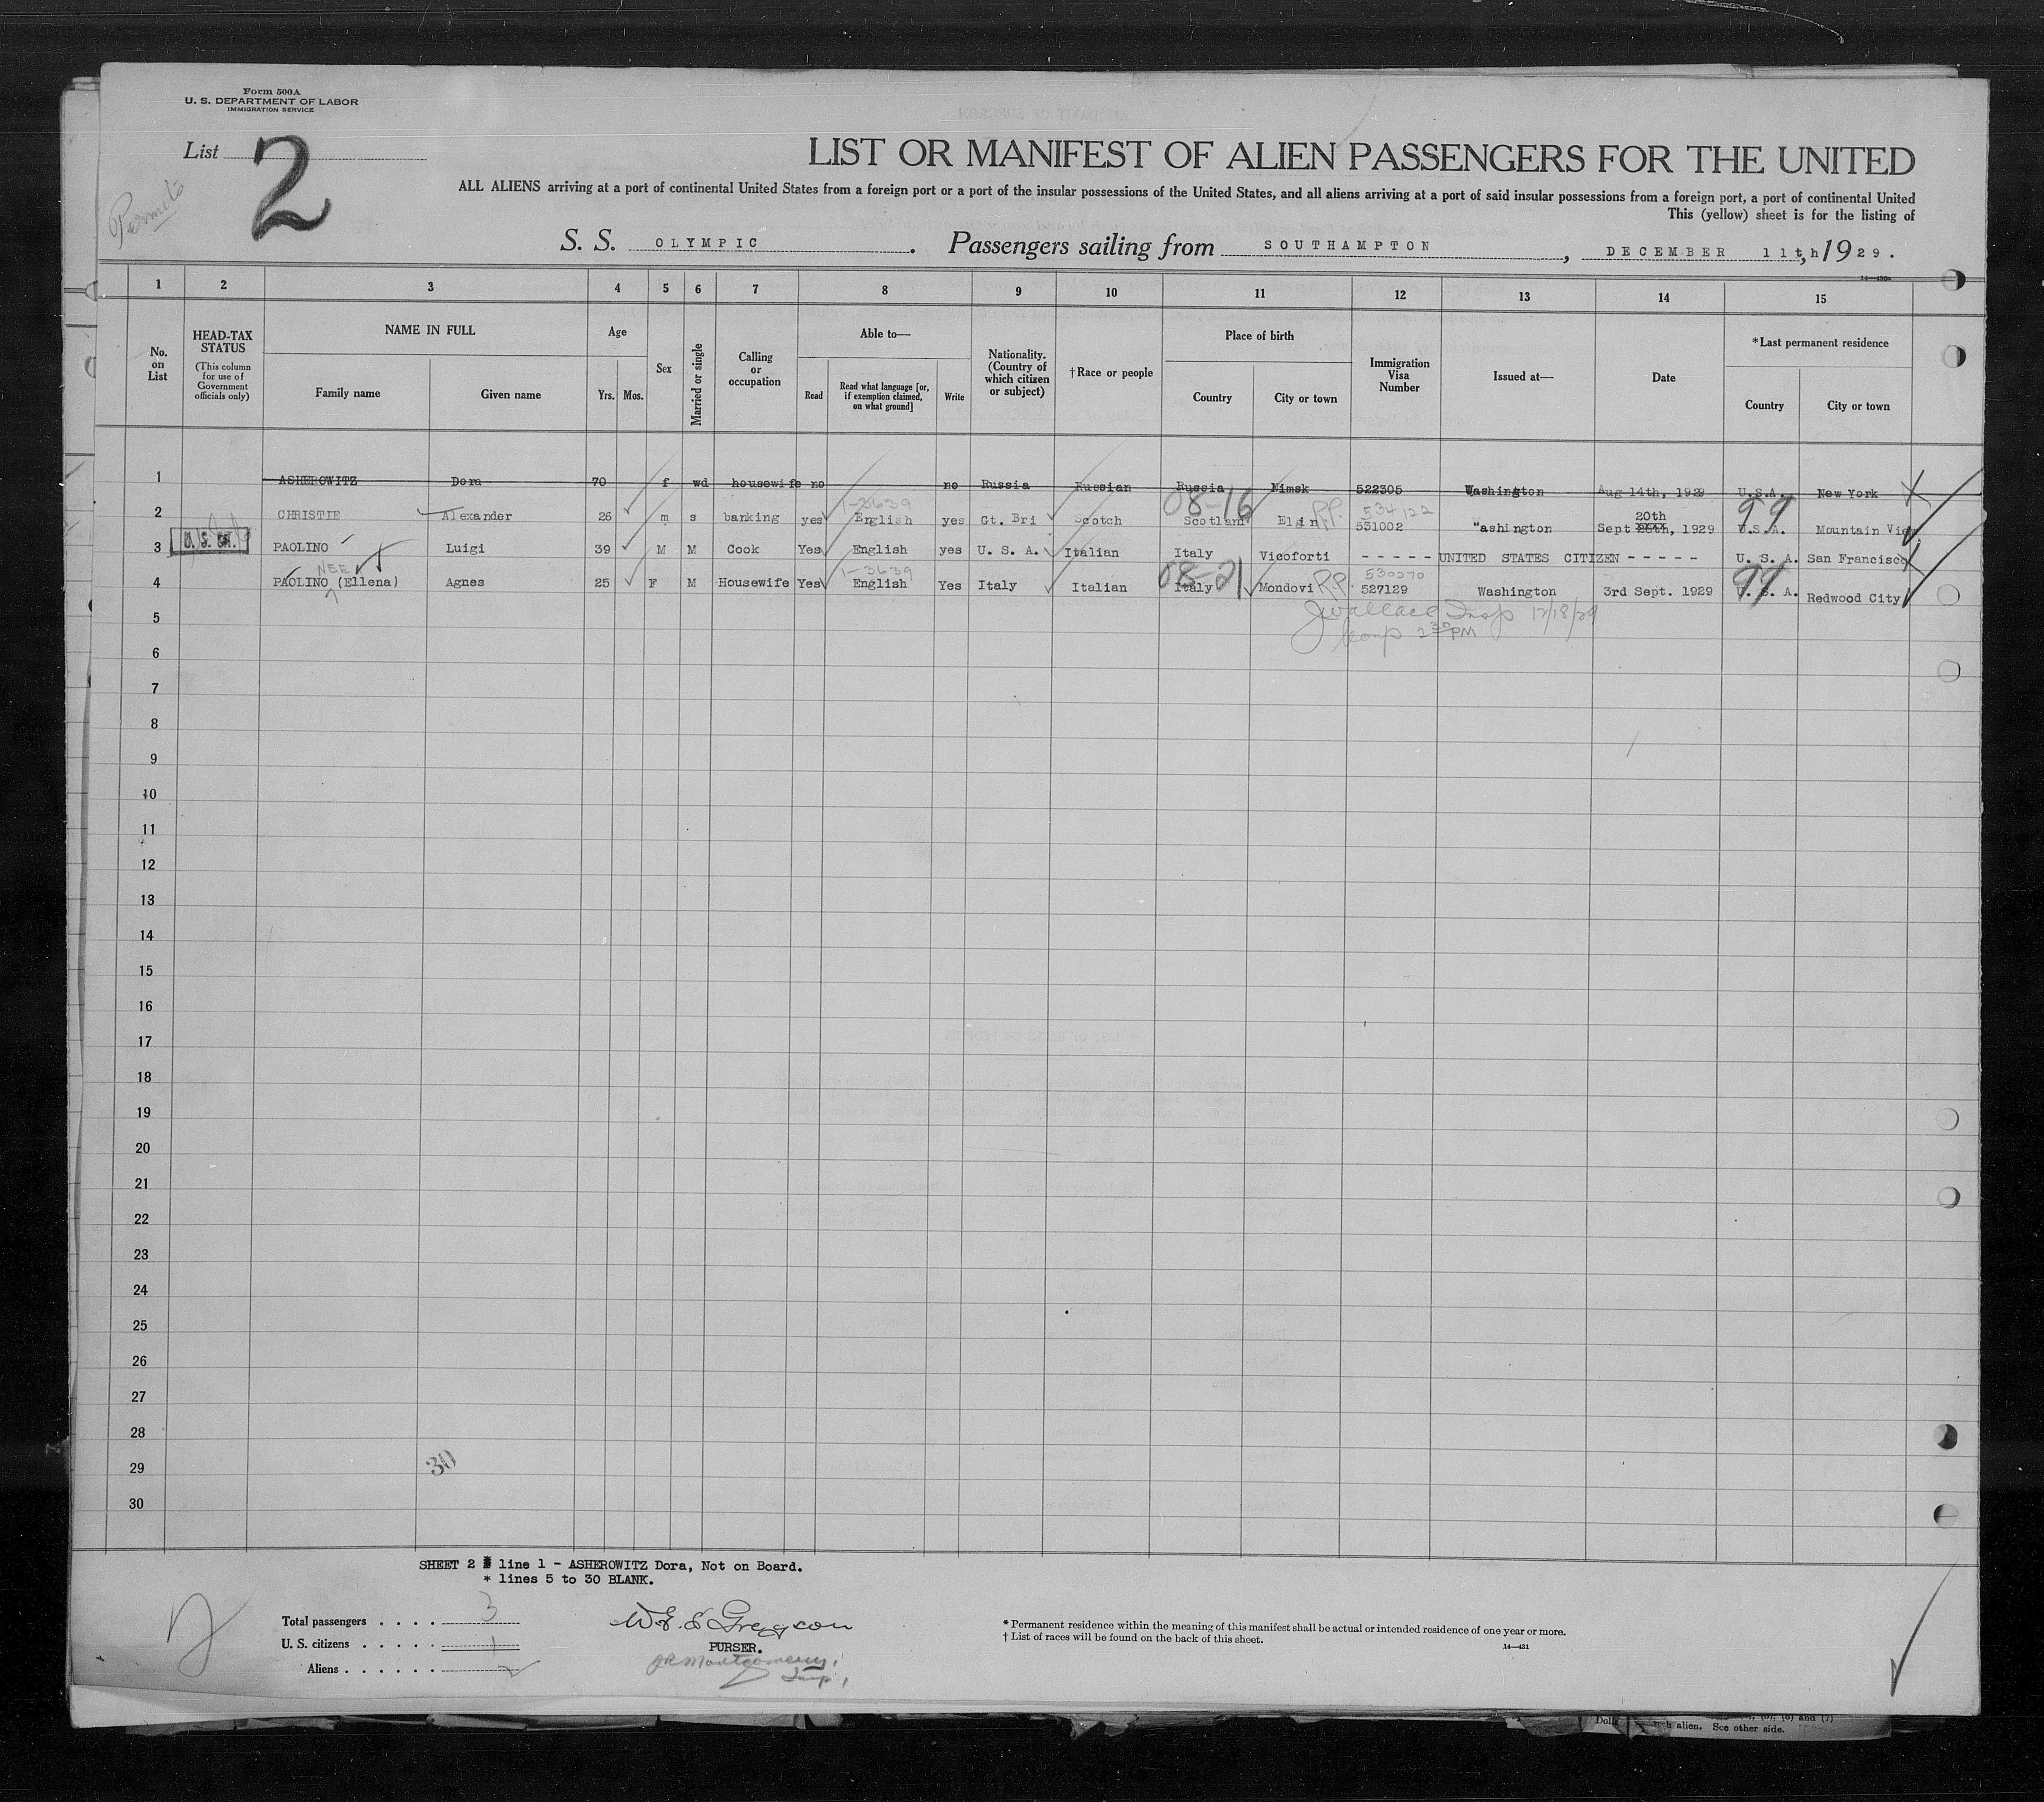 Form 500A
U. S. DEPARTMENT OF LABOR
IMMIGRATION SERVICE
List 2
Permits
LIST OR MANIFEST OF ALIEN PASSENGERS FOR THE UNITED
ALL ALIENS arriving at a port of continental United States from a foreign port or a port of the insular possessions of the United States, and all aliens arriving at a port of said insular possessions from a foreign port, a port of continental United
This (yellow) sheet is for the listing of
S. S. OLYMPIC. Passengers sailing from SOUTHAMPTON, DECEMBER 11th, 1929.
14—430a
1 2 3 4 5 6 7 8 9 10 11 12 13 14 15
No. on List
HEAD-TAX STATUS (This column for use of Government officials only)
NAME IN FULL
Family name Given name
Age
Yrs. Mos.
Sex
Married or single
Calling or occupation
Able to—
Read
Read what language [or, if exemption claimed, on what ground]
Write
Nationality. (Country of which citizen or subject)
†Race or people
Place of birth
Country City or town
Immigration Visa Number
Issued at—
Date
*Last permanent residence
Country City or town
1 ASHEROWITZ Dora 70 f wd housewife no no Russia Russian Russia Nimsk 522305 Washington Aug 14th, 1929 U.S.A. New York
1-3639 08-16 R.P. 534122 20th 99
2 CHRISTIE Alexander 26 m s banking yes English yes Gt. Bri Scotch Scotland Elgin 531002 "ashington Sept, 1929 U.S.A. Mountain View
3 U. S. CIT. PAOLINO Luigi 39 M M Cook Yes English yes U. S. A. Italian Italy Vicoforti - - - - - UNITED STATES CITIZEN - - - - - U. S. A. San Francisco
NEE 1-3639 08-21 R.P. 530270 99
4 PAOLINO (Ellena) Agnes 25 F M Housewife Yes English Yes Italy Italian Italy Mondovi 527129 Washington 3rd Sept. 1929 U. S. A. Redwood City
J Wallace Insp 12/18/29
2 30 PM
5
6
7
8
9
10
11
12
13
14
15
16
17
18
19
20
21
22
23
24
25
26
27
28
29
30
30
SHEET 2 line 1 - ASHEROWITZ Dora, Not on Board.
* lines 5 to 30 BLANK.
Total passengers . . . . 3
U. S. citizens . . . . . 1
Aliens . . . . . . 2
W. E. S Greggson
PURSER.
JR Montgomery,
Insp.
* Permanent residence within the meaning of this manifest shall be actual or intended residence of one year or more.
† List of races will be found on the back of this sheet.
14—431
alien. See other side.